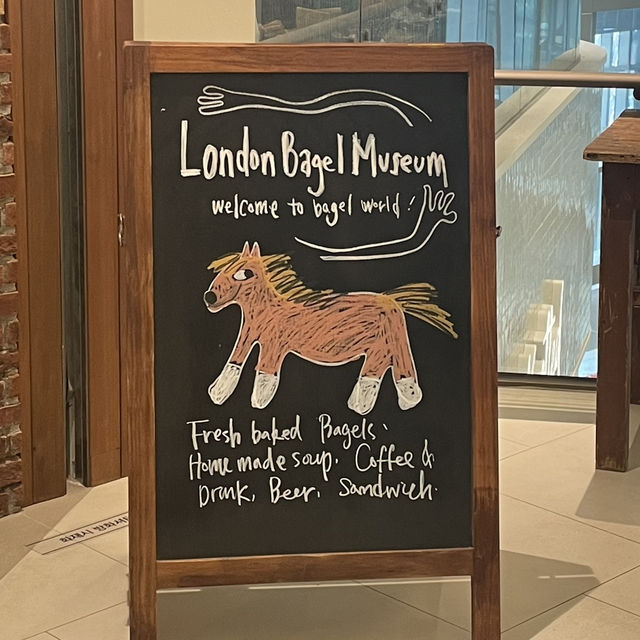 London Bagel Museum
welcome to bagel world!
Fresh baked Bagels.
Home made soup. Coffee &
Drink, Beer, Sandwich.